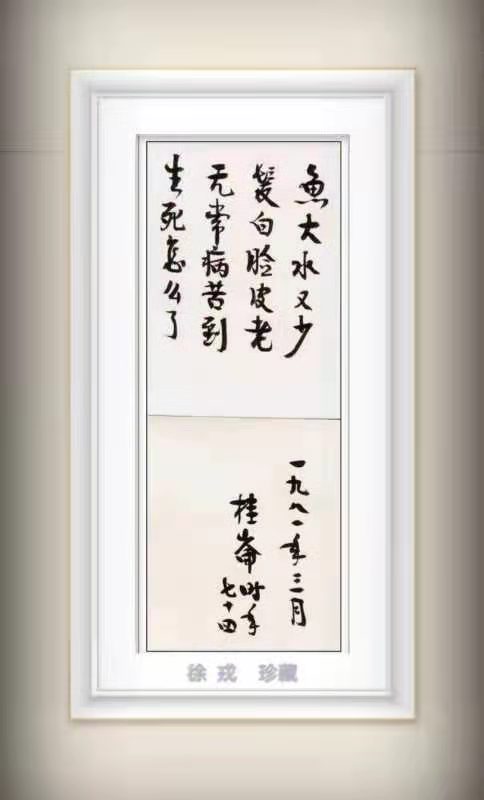 魚大水又少
髮白脸皮老
无常病苦到
生死怎么了
一九八一年三月
桂崙时年
七十四
徐戎 珍藏